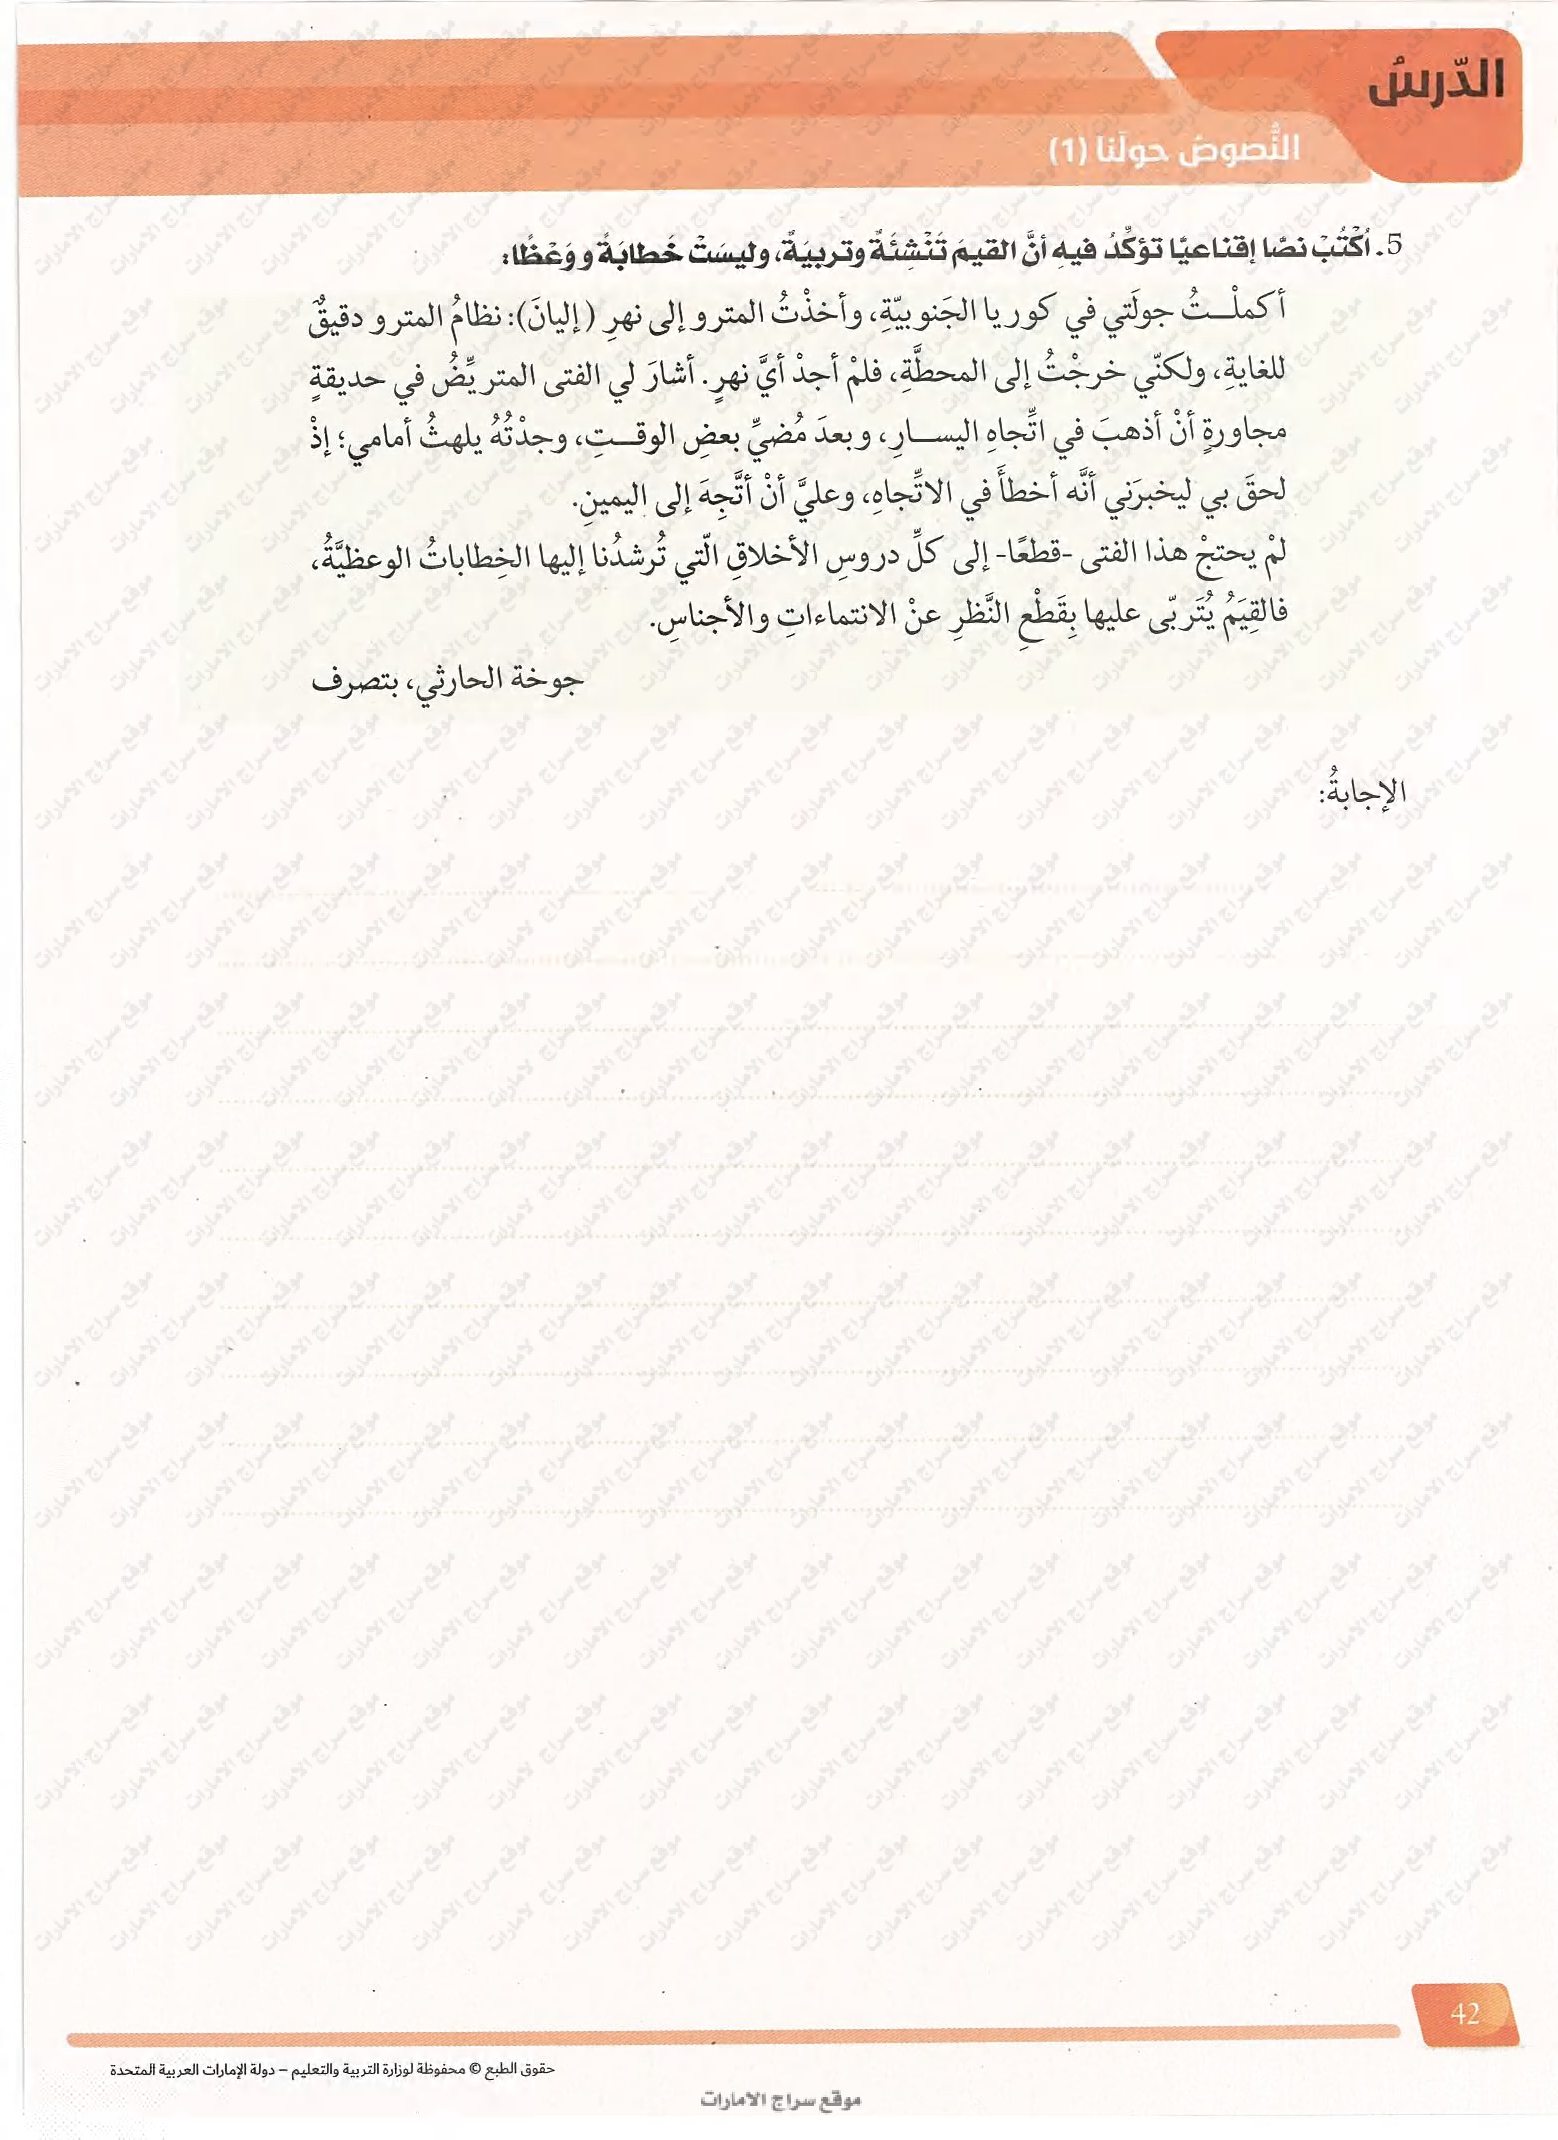 الدّرسُ
النُّصوصُ حولَنا (1)
5. اُكْتُبْ نصًّا إقناعيًّا تؤكِّدُ فيهِ أنَّ القيمَ تَنْشِئَةٌ وتربيَةٌ، وليسَتْ خَطابَةً ووَعْظًا:
أكملْـــتُ جولَتي في كوريا الجَنوبيّةِ، وأخذْتُ المترو إلى نهرِ (إليانَ): نظامُ المترو دقيقٌ
للغايةِ، ولكنّي خرجْتُ إلى المحطَّةِ، فلمْ أجدْ أيَّ نهرٍ. أشارَ لي الفتى المتريِّضُ في حديقةٍ
مجاورةٍ أنْ أذهبَ في اتِّجاهِ اليســـارِ، وبعدَ مُضيِّ بعضِ الوقـــتِ، وجدْتُهُ يلهثُ أمامي؛ إذْ
لحقَ بي ليخبرَني أنَّه أخطأَ في الاتِّجاهِ، وعليَّ أنْ أتَّجِهَ إلى اليمينِ.
لمْ يحتجْ هذا الفتى -قطعًا- إلى كلِّ دروسِ الأخلاقِ الّتي تُرشدُنا إليها الخِطاباتُ الوعظيَّةُ،
فالقِيَمُ يُتَربّى عليها بِقَطْعِ النَّظرِ عنْ الانتماءاتِ والأجناسِ.
جوخة الحارثي، بتصرف
الإجابةُ:
42
حقوق الطبع © محفوظة لوزارة التربية والتعليم – دولة الإمارات العربية المتحدة
موقع سراج الامارات